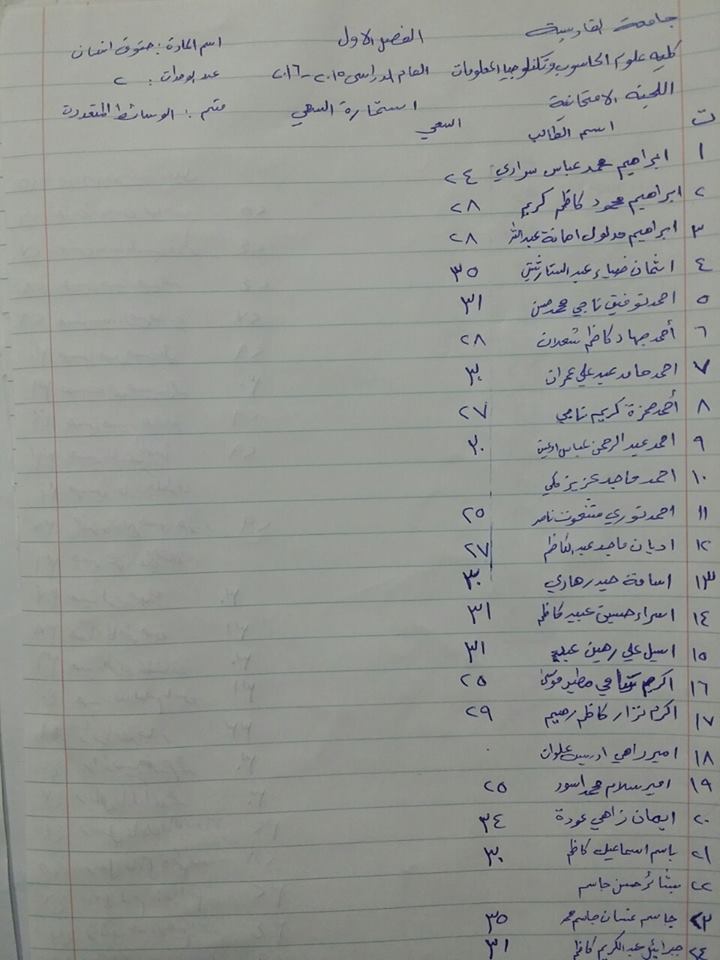 جامعة القادسية الفصل الاول اسم المادة : حقوق انسان
كلية علوم الحاسوب وتكنولوجيا المعلومات العام الدراسي ٢٠١٥-٢٠١٦ عدد الوحدات : ٢
اللجنة الامتحانية استمارة السعي قسم : الوسائط المتعددة
ت اسم الطالب السعي
١ ابراهيم محمد عباس سرادي ٢٤
٢ ابراهيم محمود كاظم كريم ٢٨
٣ ابراهيم مدلول امانة عبدالله ٢٨
٤ ضياء عبد الستار ٣٥
٥ احمد توفيق ناجي محمد حسن ٣١
٦ أحمد جهاد كاظم شعلان ٢٨
٧ احمد حامد عبد علي عمران ٣٠
٨ أحمد حمزة كريم ناجي ٢٧
٩ احمد عبد الرحمن عباس ٣٠
١٠ احمد ماجد عزيز
١١ احمد نوري ناصر ٢٥
١٢ اديان ماجد عبد الكاظم ٢٧
١٣ اسامة حيدر هادي ٣٠
١٤ اسراء حسين عبيد كاظم ٣١
١٥ اسيل علي رهين عبيد ٣١
١٦ اكرم مطير موسى ٢٥
١٧ اكرم نزار كاظم رحيم ٢٩
١٨ امير راهي ادريس علوان
١٩ امير سلام محمد اسود ٢٥
٢٠ ايمان زاهي عودة ٣٤
٢١ باسم اسماعيل كاظم ٣٠
٢٢ بشائر حسن جاسم
٢٣ جاسم غسان جاسم محمد ٣٥
٢٤ جبرائيل عبد الكريم كاظم ٣١